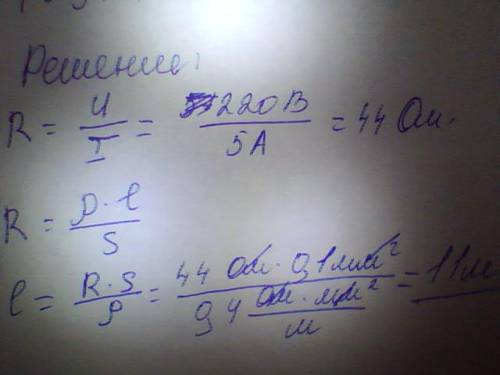 Решение:
R = U/I = 220В/5А = 44 Ом.
R = ρ·l/S
l = R·S/ρ = 44 Ом·0,1мм²/0,4 Ом·мм²/м = 11м